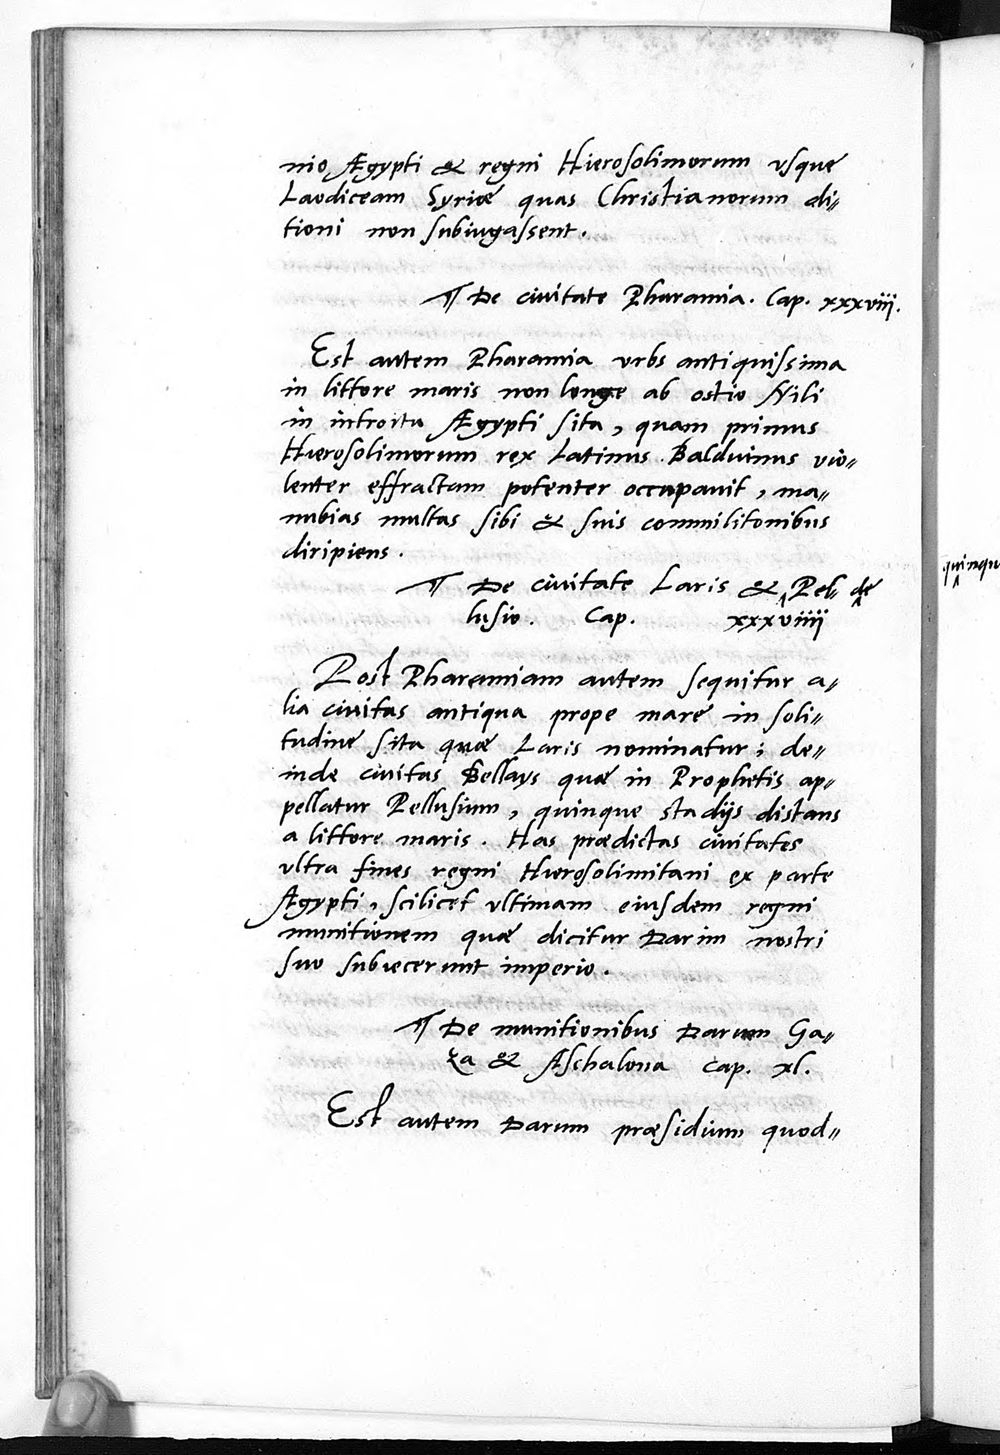 nio Ægypti & regni Hierosolimorum vsque
Laodiceam Syriæ quas Christianorum di„
tioni non subiugassent.
¶ De ciuitate Pharamia. Cap. xxxviii.
Est autem Pharamia vrbs antiquissima
in littore maris non longe ab ostio Nili
in introitu Ægypti sita, quam primus
Hierosolimorum rex Latinus Balduinus vio„
lenter effractam potenter occupauit, ma„
nubias multas sibi & suis commilitonibus
diripiens.
¶ De ciuitate Laris & ‸ Pel„ de
lusio. Cap. xxxviiii
Post Pharamiam autem sequitur a„
lia ciuitas antiqua prope mare in soli„
tudine sita quæ Laris nominatur; de„
inde ciuitas Bellays quæ in Prophetis ap„
pellatur Pellusium, quinque stadijs distans
a littore maris. Has prædictas ciuitates
vltra fines regni Hierosolimitani ex parte
Ægypti, scilicet vltimam eiusdem regni
munitionem quæ dicitur Darim nostri
suo subiecerunt imperio.
¶ De munitionibus Darum Ga„
za & Aschalona Cap. xl.
Est autem Darum præsidium quod„